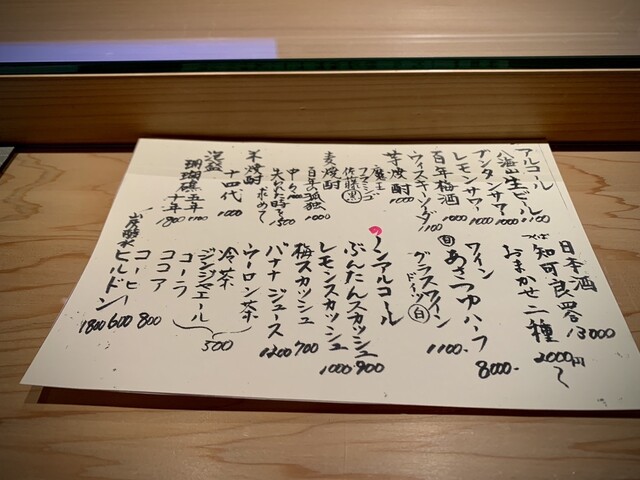 アルコール
八海山生ビール 1100
レモンサワー 1000
百年梅酒 1000
ウィスキーソーダ 1100
芋焼酎 1000
魔王
フラミンゴ
佐藤黒
麦焼酎
百年の孤独 1000
中々
失われた時を求めて 1500
米焼酎
十四代 1000
泡盛
珊瑚礁五年 1100
十年 1800
日本酒
知可良 四合 13000
おまかせ二種 2000円〜
ワイン
あさつゆ ハーフ 8000-
グラスワイン 1100-
ドイツ 白
ノンアルコール
ぶんたんスカッシュ 900
レモンスカッシュ 1000
梅スカッシュ 700
バナナジュース 1200
ウーロン茶
冷茶
ジンジャエール
コーラ
500
ココア
コーヒー 800
ヒルドン 600
1800